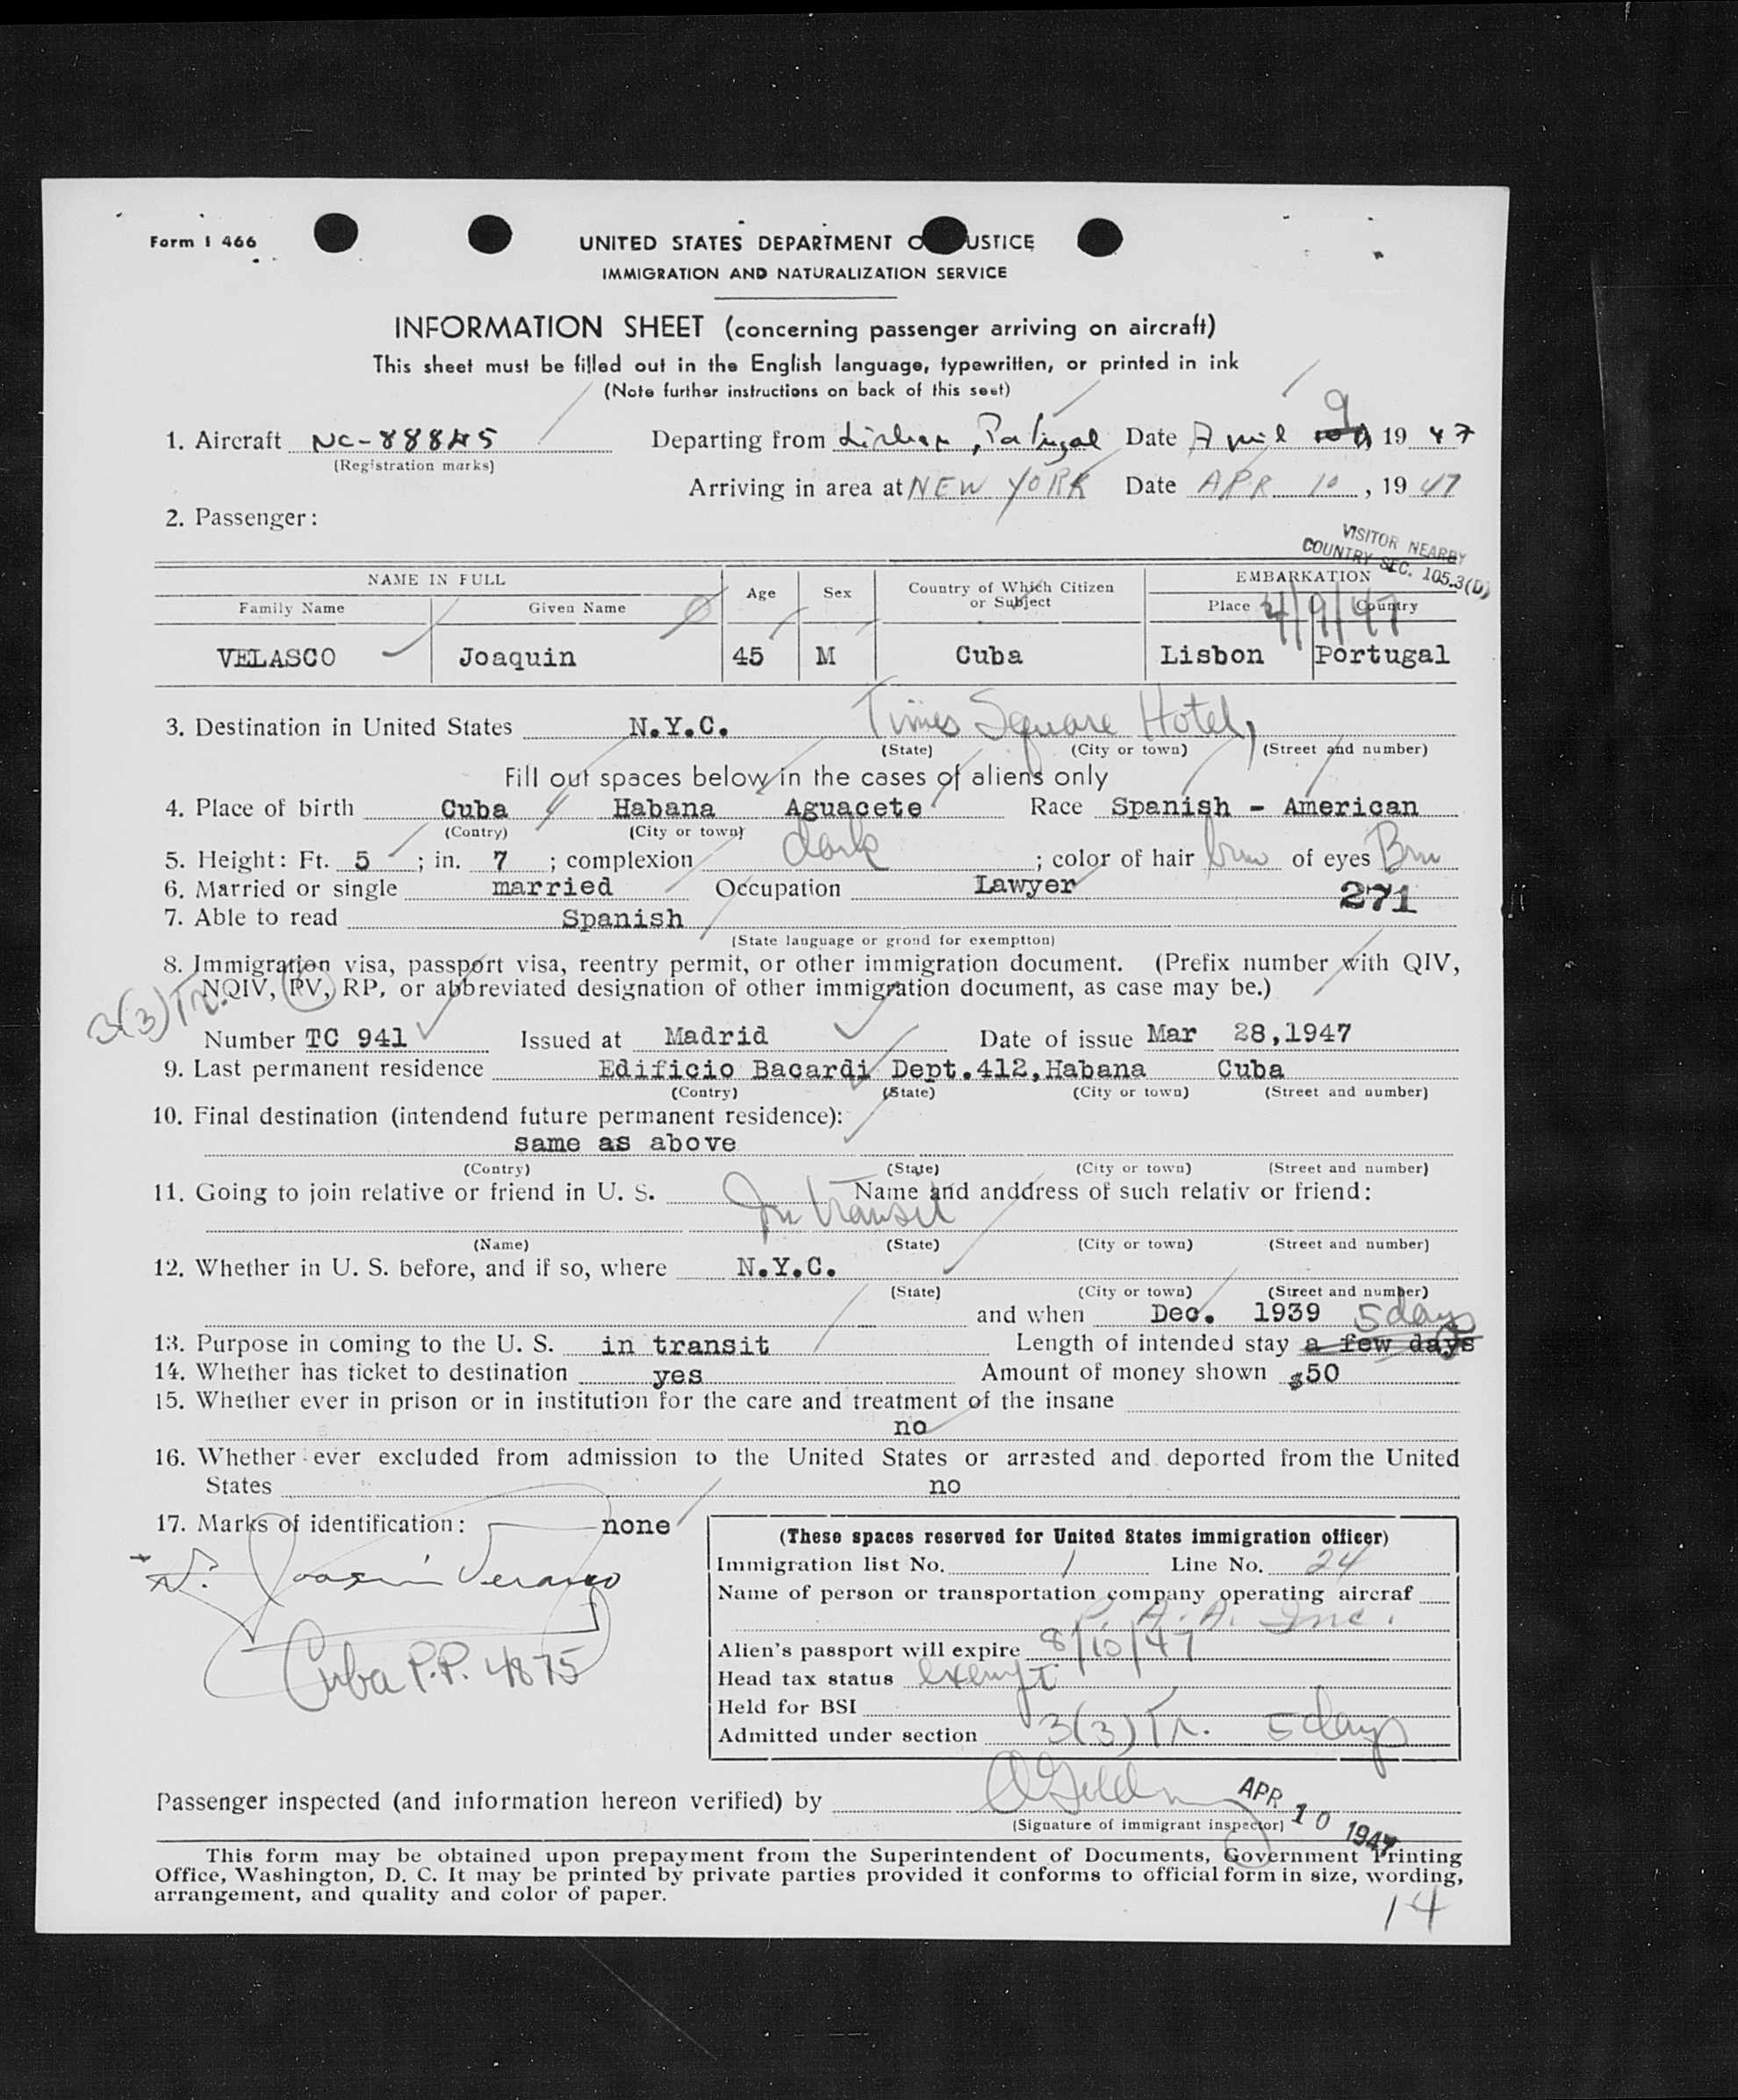 Form I 466
UNITED STATES DEPARTMENT O USTICE
IMMIGRATION AND NATURALIZATION SERVICE
INFORMATION SHEET (concerning passenger arriving on aircraft)
This sheet must be filled out in the English language, typewritten, or printed in ink
(Note further instructions on back of this seet)
1. Aircraft NC-88845 Departing from Lisbon, Portugal Date April 9, 1947
(Registration marks)
Arriving in area at NEW YORK Date APR 10, 1947
2. Passenger:
VISITOR NEARBY
COUNTRY SEC. 105.3(D)
NAME IN FULL Age Sex Country of Which Citizen or Subject EMBARKATION
Family Name Given Name Place Country
4/9/47
VELASCO Joaquin 45 M Cuba Lisbon Portugal
3. Destination in United States N.Y.C. Times Square Hotel,
(State) (City or town) (Street and number)
Fill out spaces below in the cases of aliens only
4. Place of birth Cuba Habana Aguacete Race Spanish - American
(Contry) (City or town)
5. Height: Ft. 5; in. 7; complexion dark; color of hair brn of eyes Brn
6. Married or single married Occupation Lawyer
271
7. Able to read Spanish
(State language or grond for exemptton)
8. Immigration visa, passport visa, reentry permit, or other immigration document. (Prefix number with QIV,
NQIV, PV, RP, or abbreviated designation of other immigration document, as case may be.)
3(3)Tr.
Number TC 941 Issued at Madrid Date of issue Mar 28,1947
9. Last permanent residence Edificio Bacardi Dept.412,Habana Cuba
(Contry) (State) (City or town) (Street and number)
10. Final destination (intendend future permanent residence):
same as above
(Contry) (State) (City or town) (Street and number)
11. Going to join relative or friend in U. S. Name and anddress of such relativ or friend:
In transit
(Name) (State) (City or town) (Street and number)
12. Whether in U. S. before, and if so, where N.Y.C.
(State) (City or town) (Street and number)
and when Dec. 1939 5 days
13. Purpose in coming to the U. S. in transit Length of intended stay a few days
14. Whether has ticket to destination yes Amount of money shown $50
15. Whether ever in prison or in institution for the care and treatment of the insane
no
16. Whether ever excluded from admission to the United States or arrested and deported from the United
States no
17. Marks of identification: none
Joaquin Velasco
Cuba P.P. 4875
(These spaces reserved for United States immigration officer)
Immigration list No. 1 Line No. 24
Name of person or transportation company operating aircraf
P. A. A. Inc.
Alien's passport will expire 8/10/47
Head tax status exempt
Held for BSI
Admitted under section 3(3)Tr. 5 days
Passenger inspected (and information hereon verified) by
APR 10 1947
(Signature of immigrant inspector)
This form may be obtained upon prepayment from the Superintendent of Documents, Government Printing
Office, Washington, D. C. It may be printed by private parties provided it conforms to official form in size, wording,
arrangement, and quality and color of paper.
14